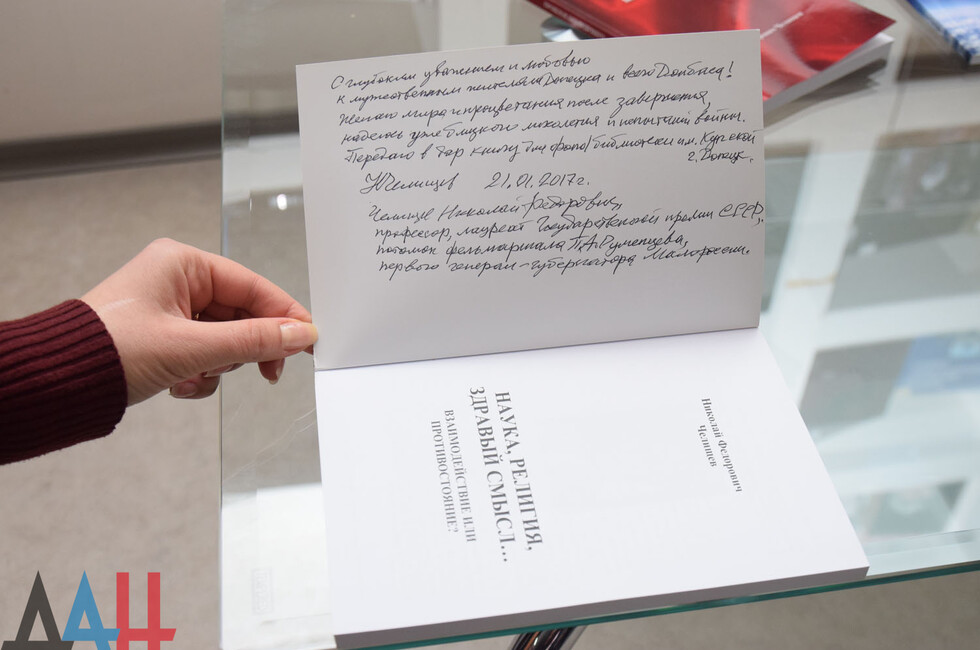 С глубоким уважением и любовью
к мужественным жителям Донецка и всего Донбасса!
Желаю мира и процветания после завершения,
надеюсь уже близкого лихолетия и попытки войны.
Передаю в дар книгу для фонда библиотеки им. Крупской
г. Донецк.
НЧелищев 21.01.2017г.
Челищев Николай Федорович,
профессор, лауреат Государственной премии СССР,
потомок фельмаршала П.А. Румянцева,
первого генерал-губернатора Малороссии.
Николай Федорович
Челищев
НАУКА, РЕЛИГИЯ,
ЗДРАВЫЙ СМЫСЛ...
ВЗАИМОДЕЙСТВИЕ ИЛИ
ПРОТИВОСТОЯНИЕ?
ДАН